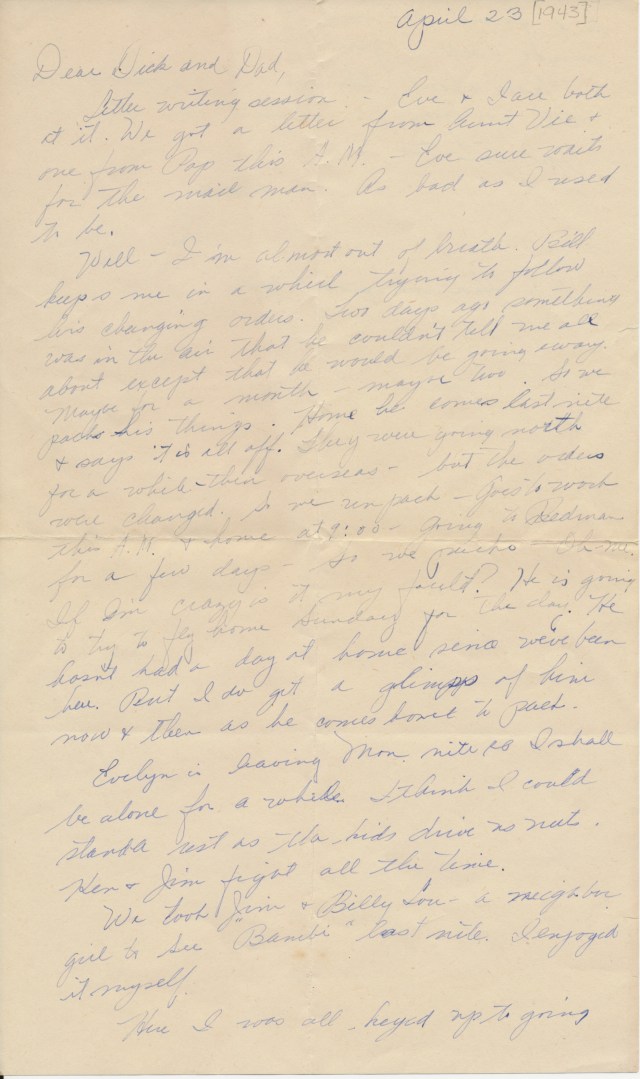 April 23 [1943]
Dear Dick and Dad,
Letter writing session. - Eve & I are both
at it. We got a letter from Aunt Vie &
one from Pap this A.M. - Eve sure waits
for the mail man. As bad as I used
to be.
Well - I'm almost out of breath. Bill
keeps me in a whirl trying to follow
his changing orders. Two days ago something
was in the air that he couldn't tell me all
about except that he would be going away.
Maybe for a month - maybe two. So we
packs his things. Home he comes last nite
& says it is all off. They were going north
for a while - then overseas - but the orders
were changed. So we unpack - Goes to work
this A.M. & home at 9:00 - going to
for a few days - So we packs - Oh me.
If I'm crazy is it my fault? He is going
to try to fly home Sunday for the day. He
hasnt had a day at home since weve been
here. But I do get a glimpse of him
now & then as he comes home to pack.
Evelyn is leaving Mon. nite so I shall
be alone for a while. I think I could
stand a rest as the kids drive us nuts.
Ken & Jim fight all the time.
We took Jim & Billy Lou - a neighbor
girl to see "Bambi" last nite. I enjoyed
it myself.
Here I was all keyed up to going